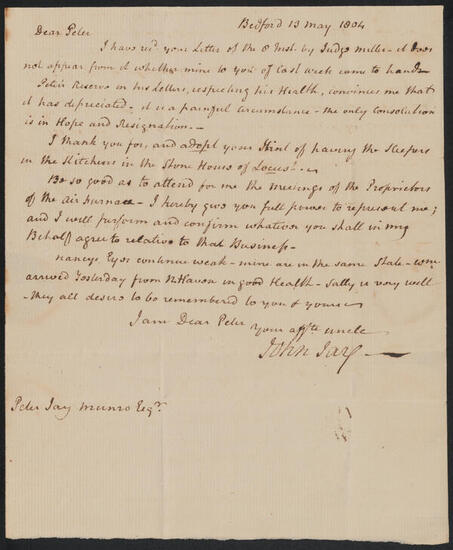 Bedford 13 May 1804
Dear Peter
I have recd your Letter of the 8 Inst. by Judge Miller - it does
not appear from it whether mine to you of last week came to hand -
Peter's Reserve in his Letters, respecting his Health, convinces me that
it has depreciated - it is a painful circumstance - the only consolation
is in Hope and Resignation. -
I thank you for, and adopt your Hint of having the Sleepers
in the Kitchen in the Stone House of Locust. -
Be so good as to attend for me the meetings of the Proprietors
of the air furnace - I hereby give you full power to represent me;
and I will perform and confirm whatever you shall in my
Behalf agree to relative to that Business -
nancys Eyes continue weak - mine are in the same State - Wm
arrived Yesterday from N Haven in good Health - Sally is very well
- they all desire to be remembered to you & yours -
I am Dear Peter your affte uncle
John Jay
Peter Jay Munro Esqr.